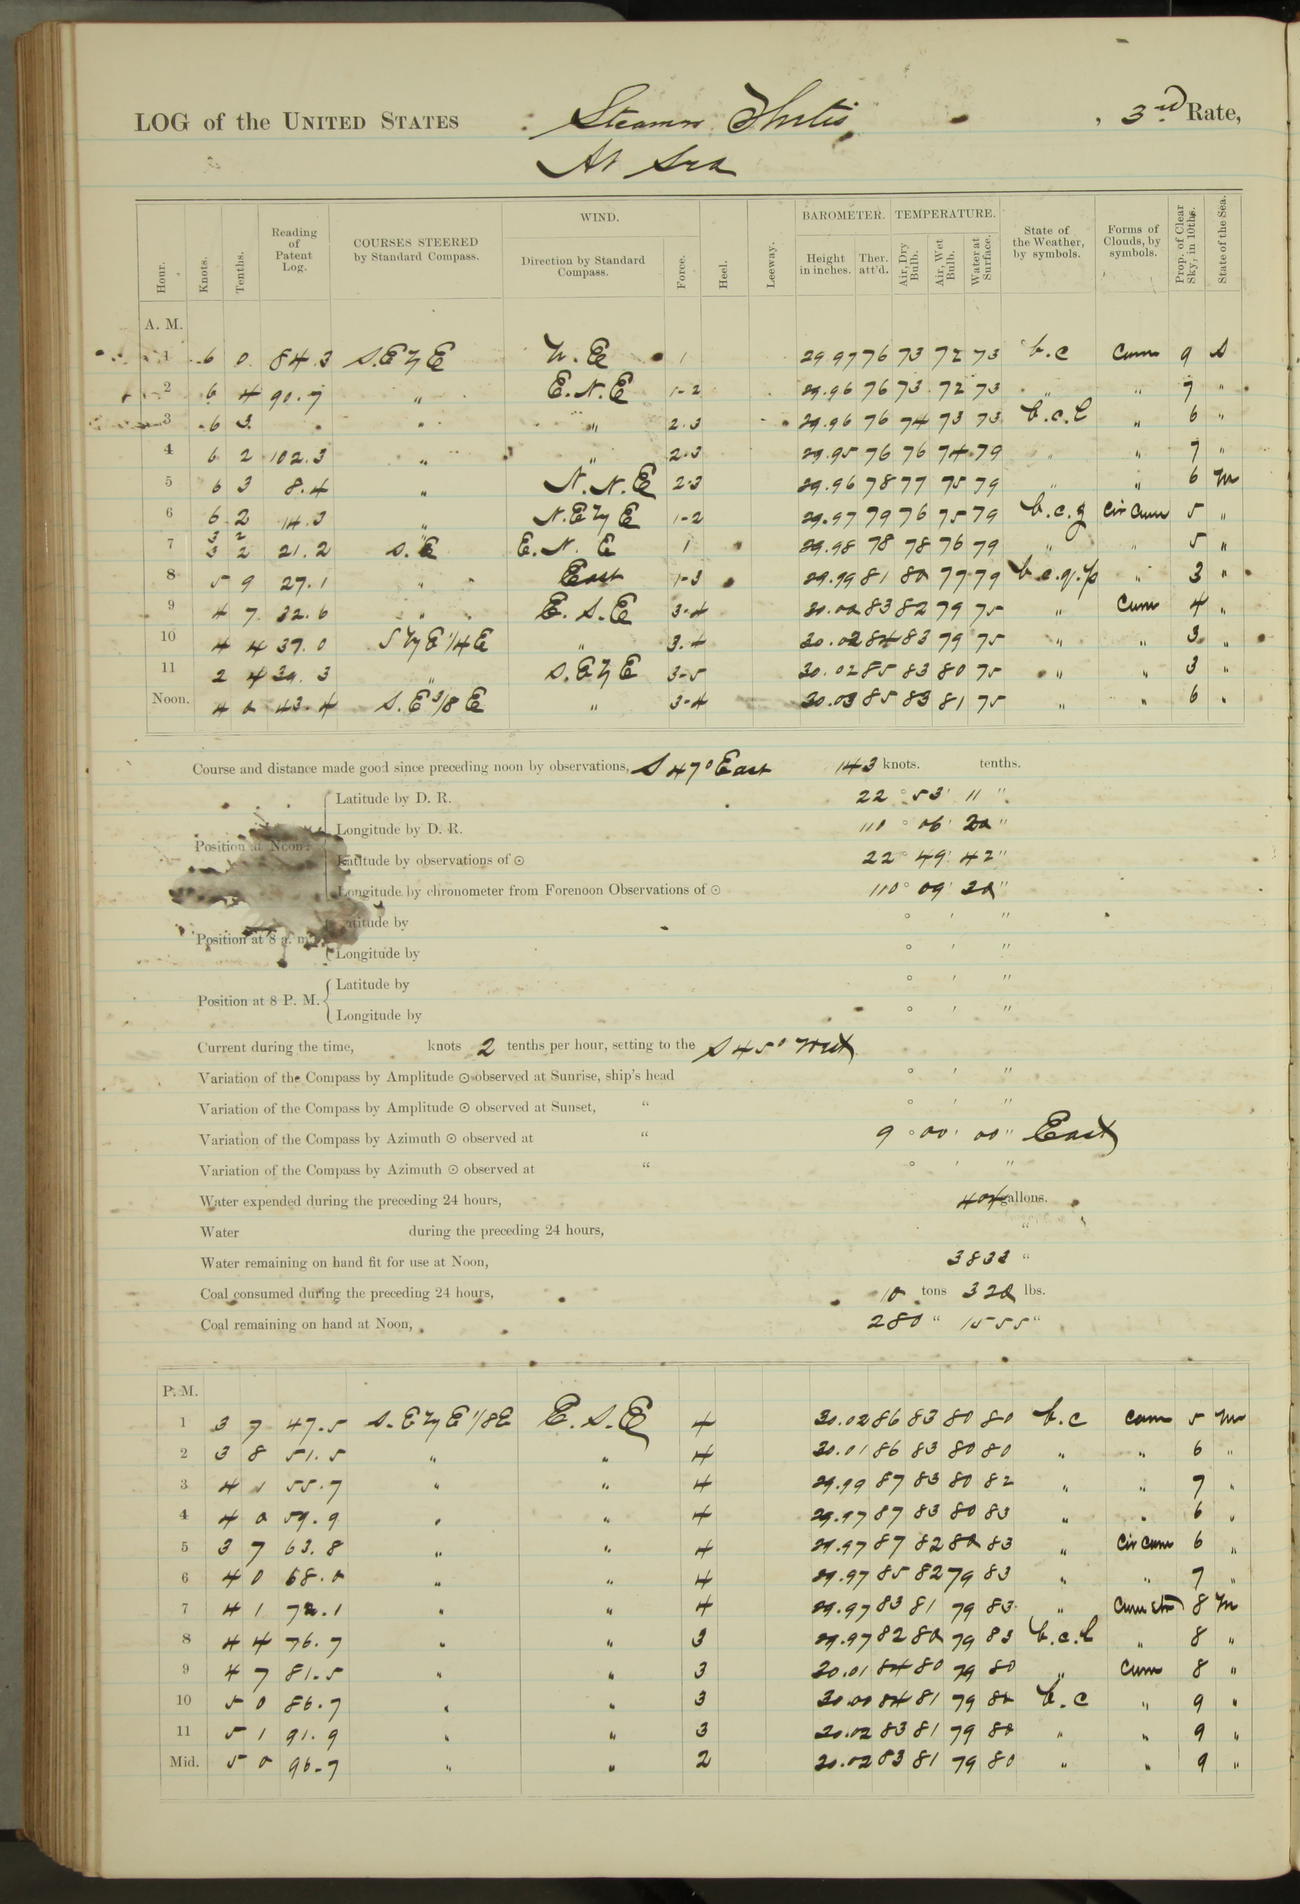 LOG of the UNITED STATES Steamer Thetis, 3rd Rate,
At Sea
Hour. Knots. Tenths. Reading of Patent Log. COURSES STEERED by Standard Compass. WIND. Direction by Standard Compass. Force. Heel. Leeway. BAROMETER. Height in inches. Ther. att'd. TEMPERATURE. Air, Dry Bulb. Air, Wet Bulb. Water at Surface. State of the Weather, by symbols. Forms of Clouds, by symbols. Prop. of Clear Sky, in 10ths. State of the Sea.
A. M.
1 6 0 84.3 S.E by E N.E 1 29.97 76 73 72 73 b.c Cum 9 S
2 6 4 90.7 " E.N.E 1-2 29.96 76 73 72 73 " " 7 "
3 6 3 " " 2-3 29.96 76 74 73 73 b.c.l " 6 "
4 6 2 102.3 " " 2-3 29.95 76 76 74 79 " " 7 "
5 6 3 8.4 " N.N.E 2-3 29.96 78 77 75 79 " " 6 M
6 6 2 14.3 " N.E by E 1-2 29.97 79 76 75 79 b.c.q Cir Cum 5 "
7 3 2 3 2 21.2 S.E E.N.E 1 29.98 78 78 76 79 " " 5 "
8 5 9 27.1 " East 1-3 29.99 81 80 77 79 b.c.q.p " 3 "
9 4 7 32.6 " E.S.E 3-4 30.02 83 82 79 75 " Cum 4 "
10 4 4 37.0 S by E 1/4 E " 3-4 30.02 84 83 79 75 " " 3 "
11 2 4 39.3 " S.E by E 3-5 30.02 85 83 80 75 " " 3 "
Noon. 4 0 43.4 S.E 3/8 E " 3-4 30.03 85 83 81 75 " " 6 "
Course and distance made good since preceding noon by observations, S 47° East 143 knots. tenths.
Latitude by D. R. 22 ° 53 ' 11 "
Longitude by D. R. 110 ° 06 ' 20 "
Position at Noon
Latitude by observations of ☉ 22 ° 49 ' 42 "
Longitude by chronometer from Forenoon Observations of ☉ 110 ° 09 ' 20 "
Latitude by ° ' "
Position at 8 a. m.
Longitude by ° ' "
Latitude by ° ' "
Position at 8 P. M.
Longitude by ° ' "
Current during the time, knots 2 tenths per hour, setting to the S 45° West
Variation of the Compass by Amplitude ☉ observed at Sunrise, ship's head ° ' "
Variation of the Compass by Amplitude ☉ observed at Sunset, " ° ' "
Variation of the Compass by Azimuth ☉ observed at " 9 ° 00 ' 00 " East
Variation of the Compass by Azimuth ☉ observed at " ° ' "
Water expended during the preceding 24 hours, 404 gallons.
Water during the preceding 24 hours, "
Water remaining on hand fit for use at Noon, 3833 "
Coal consumed during the preceding 24 hours, 10 tons 320 lbs.
Coal remaining on hand at Noon, 280 " 1555 "
P. M.
1 3 7 47.5 S.E by E 1/8 E E.S.E 4 30.02 86 83 80 80 b.c Cum 5 M
2 3 8 51.5 " " 4 30.01 86 83 80 80 " " 6 "
3 4 1 55.7 " " 4 29.99 87 83 80 82 " " 7 "
4 4 0 59.9 " " 4 29.97 87 83 80 83 " " 6 "
5 3 7 63.8 " " 4 29.97 87 82 80 83 " Cir Cum 6 "
6 4 0 68.0 " " 4 29.97 85 82 79 83 " " 7 "
7 4 1 72.1 " " 4 29.97 83 81 79 83 " Cum Str 8 M
8 4 4 76.7 " " 3 29.97 82 80 79 83 b.c.l " 8 "
9 4 7 81.5 " " 3 30.01 84 80 79 80 " Cum 8 "
10 5 0 86.7 " " 3 30.00 84 81 79 80 b.c " 9 "
11 5 1 91.9 " " 3 30.02 83 81 79 80 " " 9 "
Mid. 5 0 96.7 " " 2 30.02 83 81 79 80 " " 9 "